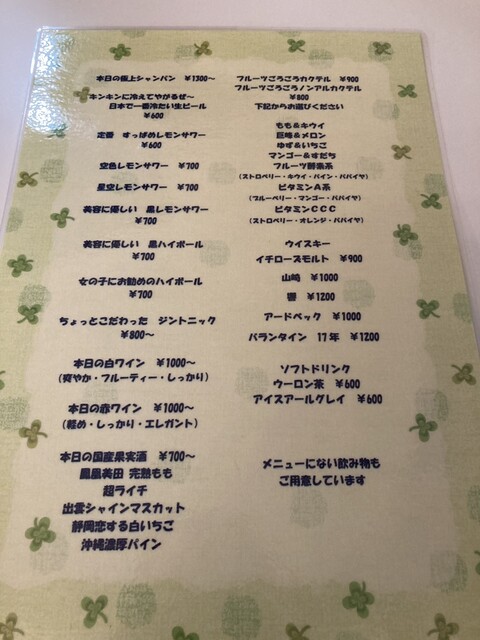 本日の極上シャンパン ¥1300～
キンキンに冷えてやがるぜ～
日本で一番冷たい生ビール
¥600
定番 すっぱめレモンサワー
¥600
空色レモンサワー ¥700
星空レモンサワー ¥700
美容に優しい 黒レモンサワー
¥700
美容に優しい 黒ハイボール
¥700
女の子にお勧めのハイボール
¥700
ちょっとこだわった ジントニック
¥800～
本日の白ワイン ¥1000～
（爽やか・フルーティー・しっかり）
本日の赤ワイン ¥1000～
（軽め・しっかり・エレガント）
本日の国産果実酒 ¥700～
鳳凰美田 完熟もも
超ライチ
出雲シャインマスカット
静岡恋する白いちご
沖縄濃厚パイン
フルーツごろごろカクテル ¥900
フルーツごろごろノンアルカクテル
¥800
下記からお選びください
もも＆キウイ
巨峰＆メロン
ゆず＆いちご
マンゴー＆すだち
フルーツ酵素系
（ストロベリー・キウイ・パイン・パパイヤ）
ビタミンA系
（ブルーベリー・マンゴー・パパイヤ）
ビタミンCCC
（ストロベリー・オレンジ・パパイヤ）
ウイスキー
イチローズモルト ¥900
山崎 ¥1000
響 ¥1200
アードベック ¥1000
バランタイン 17年 ¥1200
ソフトドリンク
ウーロン茶 ¥600
アイスアールグレイ ¥600
メニューにない飲み物も
ご用意しています